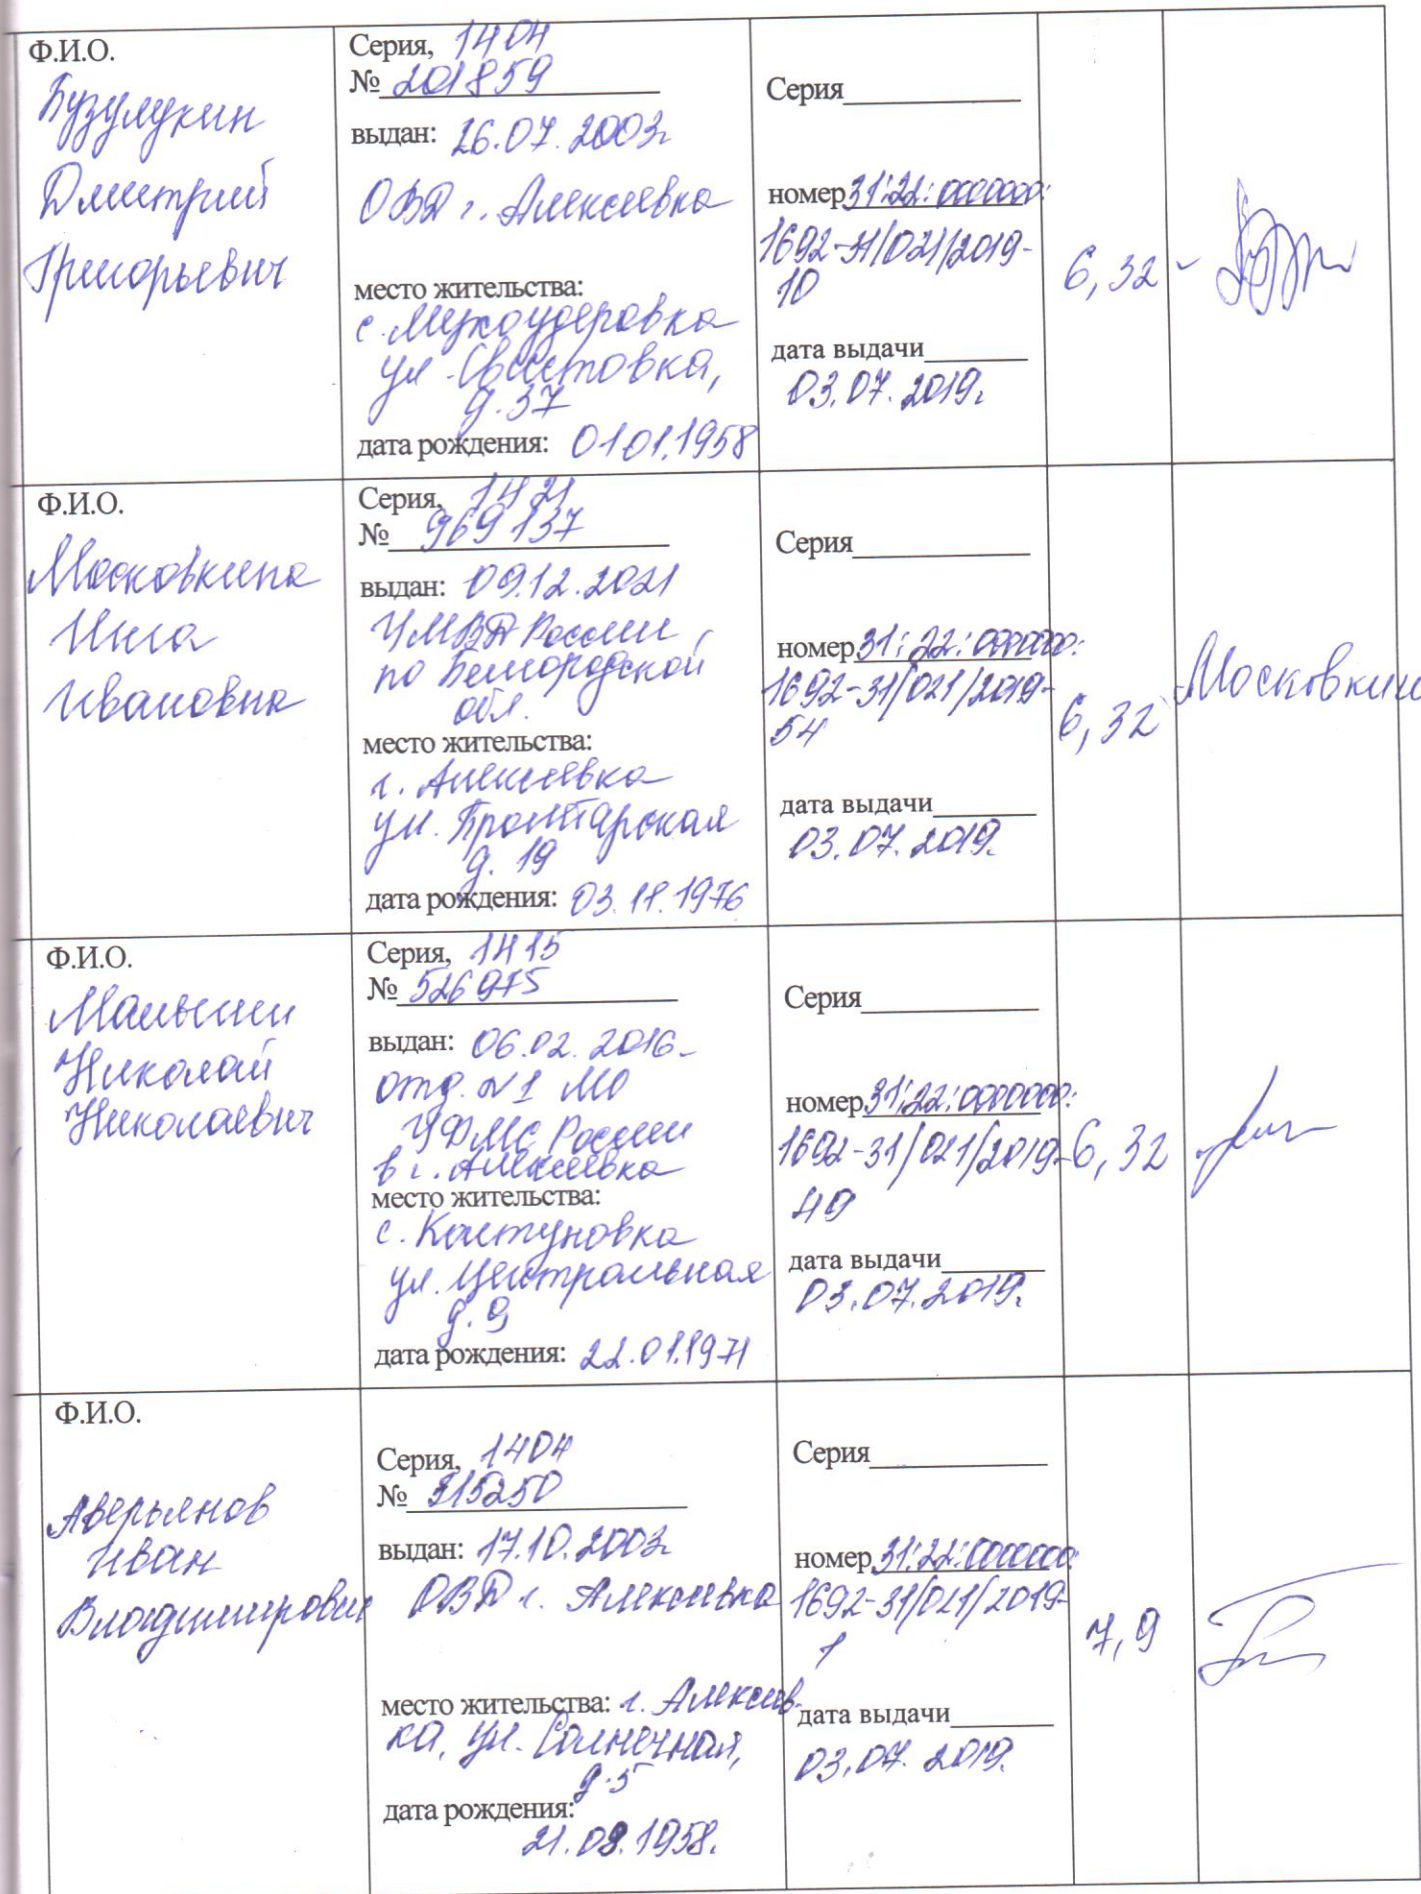 Ф.И.О.
Бузулукин
Дмитрий
Григорьевич
Серия, 1404
№ 201859
выдан: 26.07.2003г
ОВД г. Алексеевка
место жительства:
с. Мухоудеровка
ул. Свистовка,
д. 37
дата рождения: 01.01.1958
Серия
номер 31:22:0000000:
1692-31/021/2019-
10
дата выдачи
03.07.2019г.
6,32
Ф.И.О.
Московкина
Инга
Ивановна
Серия, 1421
№ 969137
выдан: 09.12.2021
УМВД России
по Белгородской
обл.
место жительства:
г. Алексеевка
ул. Пролетарская
д. 19
дата рождения: 03.11.1976
Серия
номер 31:22:0000000:
1692-31/021/2019-
54
дата выдачи
03.07.2019г.
6,32
Московкин
Ф.И.О.
Малыхин
Николай
Николаевич
Серия, 1415
№ 526975
выдан: 06.02.2016
отд. №1 МО
УФМС России
в г. Алексеевка
место жительства:
с. Колтуновка
ул. Центральная
д. 9
дата рождения: 22.01.1971
Серия
номер 31:22:0000000:
1692-31/021/2019-
49
дата выдачи
03.07.2019г.
6,32
Ф.И.О.
Аверьянов
Иван
Владимирович
Серия, 1404
№ 315250
выдан: 17.10.2003г
ОВД г. Алексеевка
место жительства: г. Алексеев-
ка, ул. Солнечная,
д. 5
дата рождения:
21.09.1958г.
Серия
номер 31:22:0000000:
1692-31/021/2019-
1
дата выдачи
03.07.2019г.
7,9